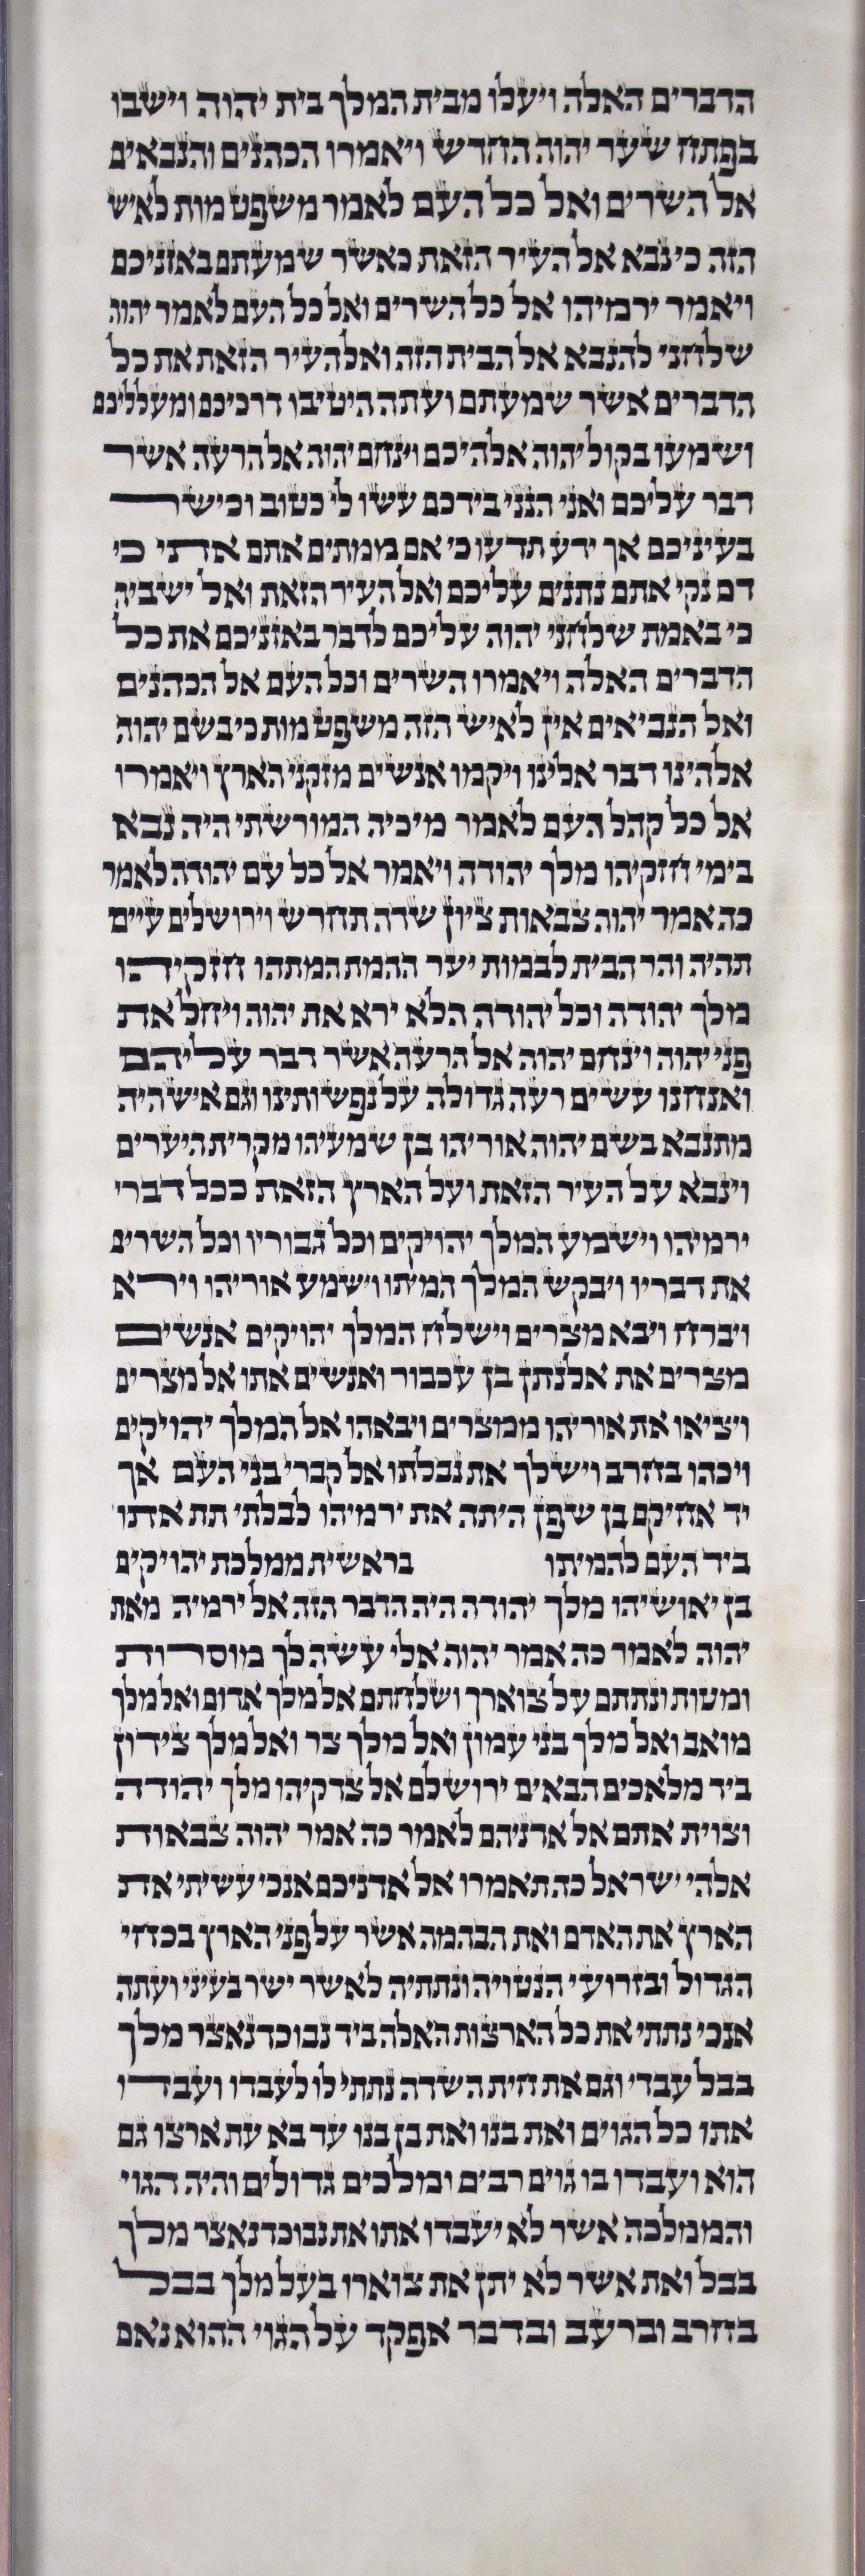 הדברים האלה ויעלו מבית המלך בית יהוה וישבו
בפתח שער יהוה החדש ויאמרו הכהנים והנבאים
אל השרים ואל כל העם לאמר משפט מות לאיש
הזה כי נבא אל העיר הזאת כאשר שמעתם באזניכם
ויאמר ירמיהו אל כל השרים ואל כל העם לאמר יהוה
שלחני להנבא אל הבית הזה ואל העיר הזאת את כל
הדברים אשר שמעתם ועתה היטיבו דרכיכם ומעלליכם
ושמעו בקול יהוה אלהיכם וינחם יהוה אל הרעה אשר
דבר עליכם ואני הנני בידכם עשו לי כטוב וכישר
בעיניכם אך ידע תדעו כי אם ממתים אתם אתי כי
דם נקי אתם נתנים עליכם ואל העיר הזאת ואל ישביה
כי באמת שלחני יהוה עליכם לדבר באזניכם את כל
הדברים האלה ויאמרו השרים וכל העם אל הכהנים
ואל הנביאים אין לאיש הזה משפט מות כי בשם יהוה
אלהינו דבר אלינו ויקמו אנשים מזקני הארץ ויאמרו
אל כל קהל העם לאמר מיכיה המורשתי היה נבא
בימי חזקיהו מלך יהודה ויאמר אל כל עם יהודה לאמר
כה אמר יהוה צבאות ציון שדה תחרש וירושלים עיים
תהיה והר הבית לבמות יער ההמת המתהו חזקיהו
מלך יהודה וכל יהודה הלא ירא את יהוה ויחל את
פני יהוה וינחם יהוה אל הרעה אשר דבר עליהם
ואנחנו עשים רעה גדולה על נפשותינו וגם איש היה
מתנבא בשם יהוה אוריהו בן שמעיהו מקרית היערים
וינבא על העיר הזאת ועל הארץ הזאת ככל דברי
ירמיהו וישמע המלך יהויקים וכל גבוריו וכל השרים
את דבריו ויבקש המלך המיתו וישמע אוריהו וירא
ויברח ויבא מצרים וישלח המלך יהויקים אנשים
מצרים את אלנתן בן עכבור ואנשים אתו אל מצרים
ויציאו את אוריהו ממצרים ויבאהו אל המלך יהויקים
ויכהו בחרב וישלך את נבלתו אל קברי בני העם אך
יד אחיקם בן שפן היתה את ירמיהו לבלתי תת אתו
ביד העם להמיתו בראשית ממלכת יהויקים
בן יאושיהו מלך יהודה היה הדבר הזה אל ירמיה מאת
יהוה לאמר כה אמר יהוה אלי עשה לך מוסרות
ומטות ונתתם על צוארך ושלחתם אל מלך אדום ואל מלך
מואב ואל מלך בני עמון ואל מלך צר ואל מלך צידון
ביד מלאכים הבאים ירושלם אל צדקיהו מלך יהודה
וצוית אתם אל אדניהם לאמר כה אמר יהוה צבאות
אלהי ישראל כה תאמרו אל אדניכם אנכי עשיתי את
הארץ את האדם ואת הבהמה אשר על פני הארץ בכחי
הגדול ובזרועי הנטויה ונתתיה לאשר ישר בעיני ועתה
אנכי נתתי את כל הארצות האלה ביד נבוכדנאצר מלך
בבל עבדי וגם את חית השדה נתתי לו לעבדו ועבדו
אתו כל הגוים ואת בנו ואת בן בנו עד בא עת ארצו גם
הוא ועבדו בו גוים רבים ומלכים גדולים והיה הגוי
והממלכה אשר לא יעבדו אתו את נבוכדנאצר מלך
בבל ואת אשר לא יתן את צוארו בעל מלך בבל
בחרב וברעב ובדבר אפקד על הגוי ההוא נאם